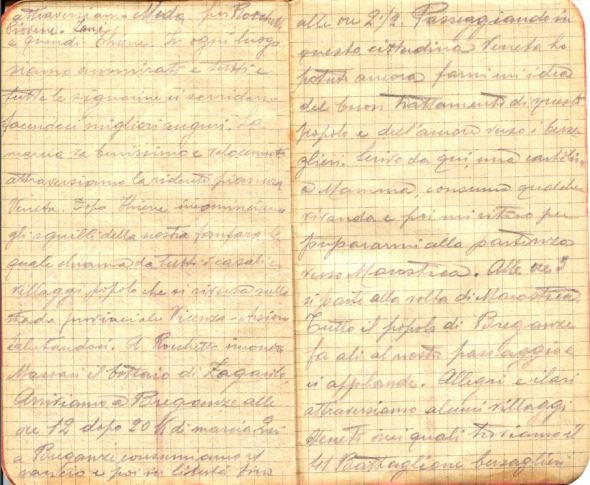 attraversiamo Meda, poi Rocchette
Piovene. Zanè
e quindi Thiene. In ogni luogo
siamo ammirati e tutti e
tutte le signorine ci sorridono
facendoci migliori auguri. La
marcia va benissimo e velocemente
attraversiamo la ridente pianura
Veneta. Dopo Thiene incominciano
gli squilli della nostra fanfara la
quale chiama da tutti i casali e
villaggi popolo che si riversa sulla
strada provinciale Vicenza -
salutandoci. A Rocchette incontro
Massari il bottaio di Zagarolo.
Arriviamo a Breganze alle
ore 12 dopo 20 K di marcia. Qui
a Breganze consumiamo il
rancio e poi in libertà fino
alle ore 2 1/2. Passeggiando in
questa cittadina Veneta ho
potuto ancora farmi un'idea
del buon trattamento di questo
popolo e dell'amore verso i bersa-
glieri. Scrivo da qui una cartolina
a Mamma, consumo qualche
vivanda e poi mi ritiro per
prepararmi alla partenza
verso Marostica. Alle ore 3
si parte alla volta di Marostica.
Tutto il popolo di Breganze
fa ali al nostro passaggio e
ci applaude. Allegri e ilari
attraversiamo alcuni villaggi
Veneti nei quali troviamo il
41 Battaglione bersaglieri